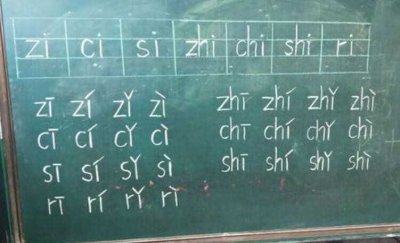 zi ci si zhi chi shi ri
zī zí zǐ zì zhī zhí zhǐ zhì
cī cí cǐ cì chī chí chǐ chì
sī sí sǐ sì shī shí shǐ shì
rī rí rǐ rì